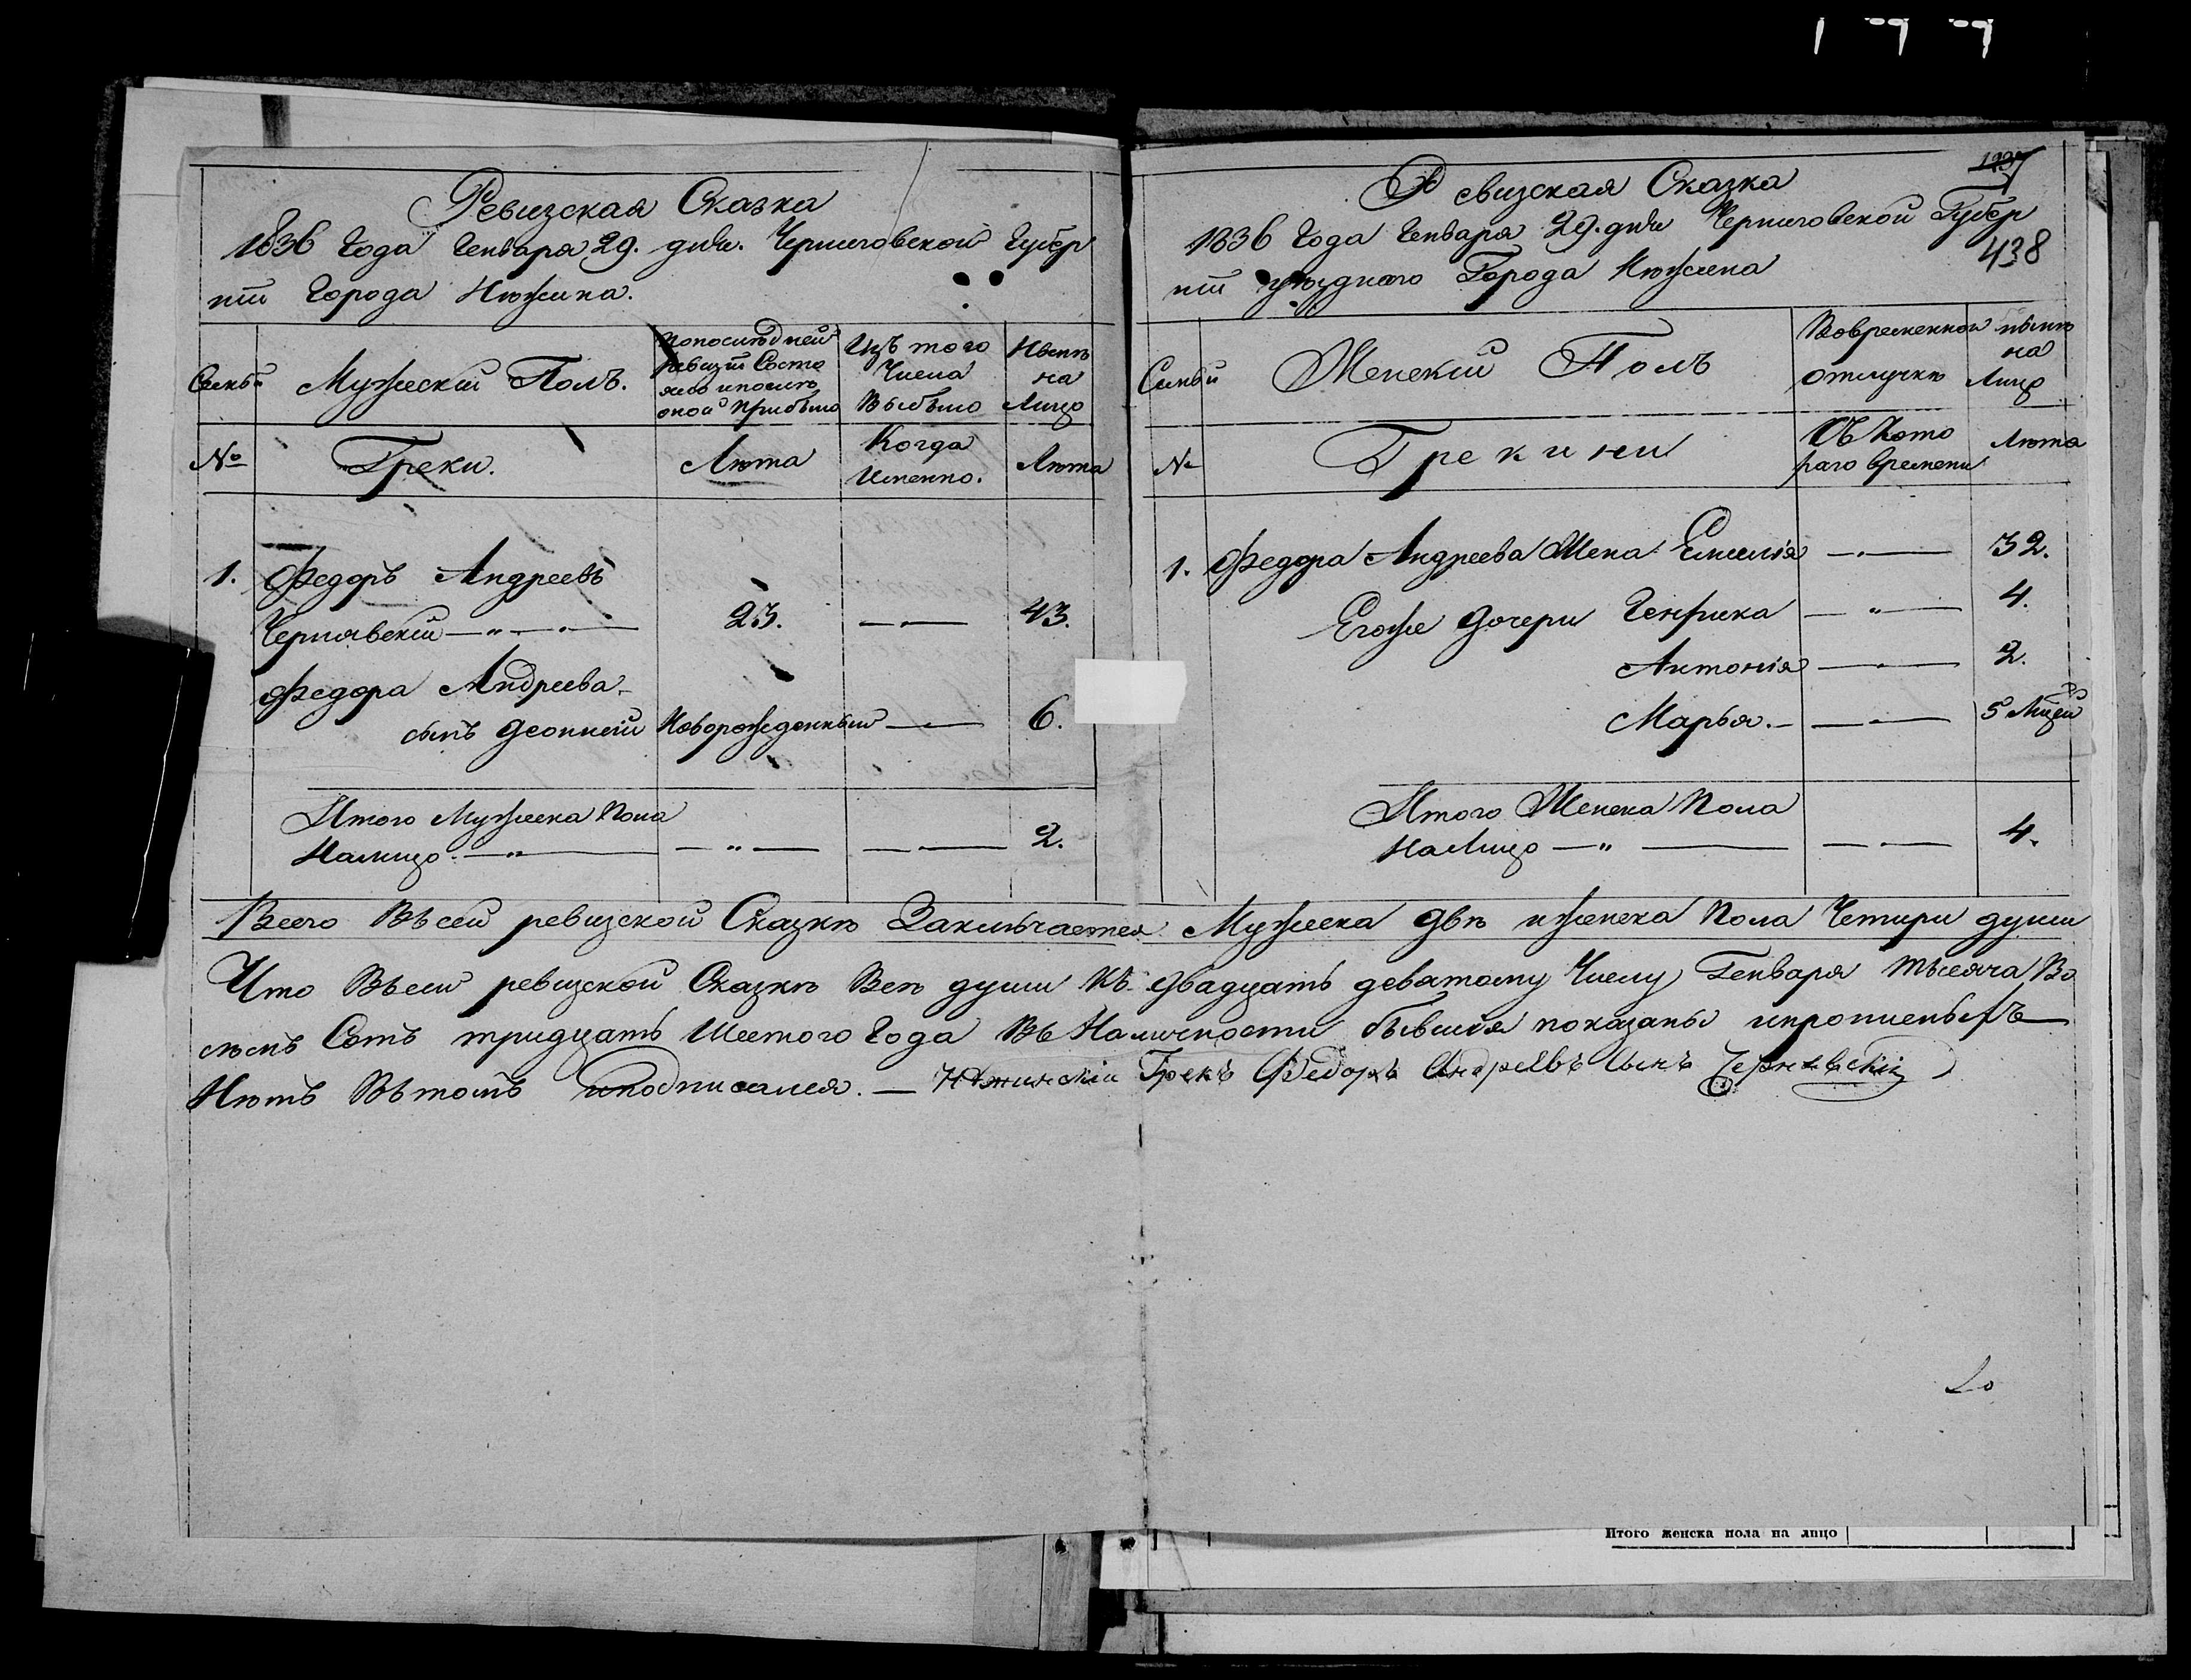 Ревизская Сказка
1836 Года Генваря 29. дня. Черниговской Губер
нии Города Нѣжина.
Семьи
Мужеский Полъ.
Попослѣдней
ревизіи Состо
яло ипослѣ
оной прибыло
Изъ того
Числа
Выбыло
Нынѣ
на
Лицо
№
Греки.
Лѣта
Когда
Именно.
Лѣта
1. Федоръ Андреевъ
Чернявскій — „ — . — 23. — . — 43.
Федора Андреева
сынъ Деонисій Новорожденный — . — 6.
Итого Мужеска Пола
Налицо. — „ — — „ — — . — 2.
1237
Ревизская Сказка
1836 Года Генваря 29. дня Черниговской Губер
438
нии уѣзднаго Города Нѣжина
Семьи
Женский Полъ
Вовременной
отлучкѣ
нынѣ
на
Лицо
№
Грекини
Съ Кото
раго времени
Лѣта
1. Федора Андреева Жена Емилія — . — 32.
Егоже дочери Генрика — „ — 4.
Антонія — . — 2.
Марья. — — . — 5 Мцей
Итого Женска Пола
НаЛицо — „ — — . — 4.
Всего Въсей ревизской Сказкѣ Заключается Мужеска двѣ иженска Пола Четири души
Что Въсей ревизской Сказкѣ Всѣ души Къ двадцать девятому Числу Генваря тысяча Во
семь Сотъ тридцать Шестого Года Въ Наличности бывшія показаны ипрописныхъ
Нѣтъ Вътомъ иподписался. — Нѣжинскій Грекъ Федоръ Андреевъ Сынъ Чернявскій
Итого женска пола на лицо